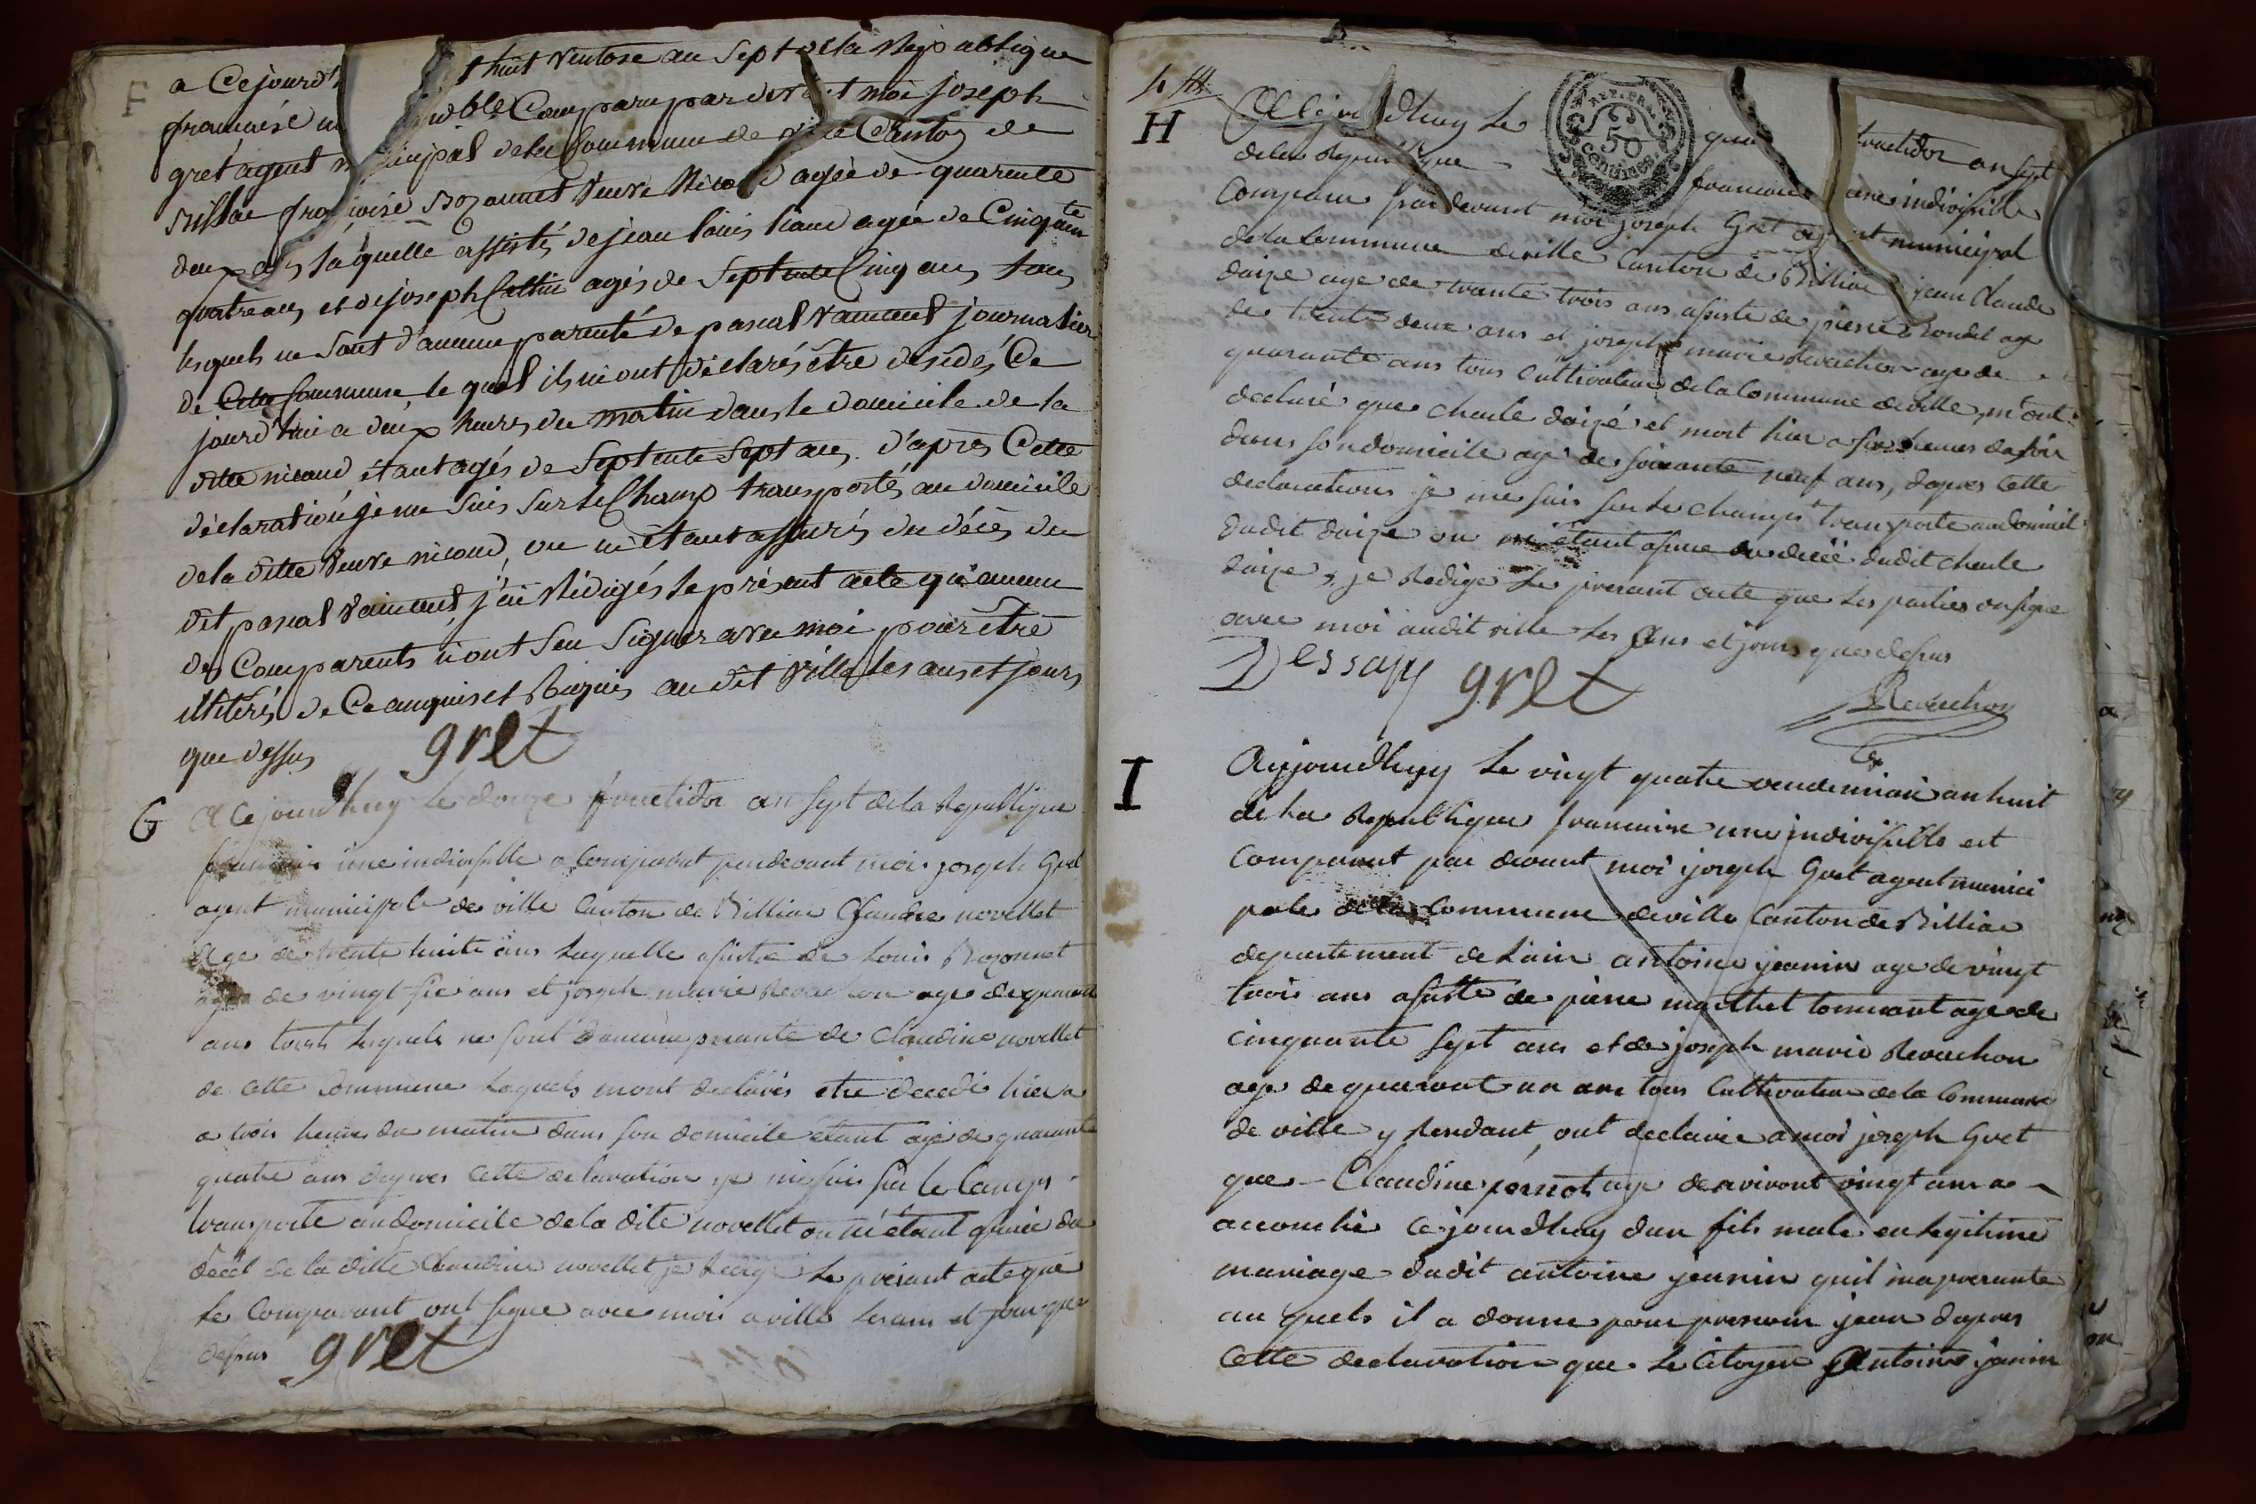 F
a Cejourd'h thuit Ventose an Sept de la Republique
francaise un ble Comparu par devant moi joseph
gret agent municipal de la Commune de ville Canton de
Billiac françoise Bozonnet veuve Nicoud agée de quarente
deux ans laquelle assistés de jean louis nicoud agée de Cinquante
quatre ans et de joseph Cattin agés de Septente Cinq ans tous
lesquels ne sont d'aucune parenté de pascal journalier
de Cette Commune le quel ils m'ont déclarés être désédés Ce
jourd'hui a deux heures du matin dans le domicile de la
ditte nicoud étant agés de Septente Sept ans d'après Cette
déclaration je me Suis Sur le Champ transportés au domicile
de la ditte veuve nicoud, ou m'étant assurés du décès du
dit pascal j'ai Rédigés le présent acte qu'aucun
des Comparents n'ont Seu Signer avec moi pour être
illitérés de Ce enquis et Requis au dit Ville les ans et jours
que dessus
gret
G
A Cejourdhuy le douze fructidor an sept de la Republique
francaise une indivisible a Comparut pardevant moi joseph Gret
agent municipale de ville Canton de Billiac Claudine novellet
Age de trente huite ans laquelle assistée de Louis Bozonnet
age de vingt six ans et joseph marie Revuchon age de quarante
ans touts lesquels ne sont d'aucune parenté de Claudine novellet
de cette Commune lequels mont declarés etre decedé hier
a trois heures du matin dans son domicile etant agé de quarante
quatre ans dapres cette declaration je me suis sur le Camps
transporté au domicile de la dite novellet ou m'étant asuré du
décét de la ditte Claudine novellet je Redige le present acte que
le Comparant ont signé avec mois a ville les ans et jour que
desus
gret
H
REP. FRA.
50
Centimes
A Cejourdhuy le fructidor an sept
de la Republique francaise une indivisible
Comparu par devant moi joseph Gret agent municipal
de la Commune de ville Canton de Billiac jean Claude
Daizé age de trante trois ans asisté de pierre Rondet age
de trente deux ans et joseph marie Revuchon age de
quarante ans tous Cultivateur de la Commune de ville, m'ont
declaré que charle Daizé et mort hier a six heures du soir
dans son domicile agé de soixante neuf ans, dapres Cette
declaration je me suis sur le champs transporté au domicile
dudit Daizé ou m'étant asuré du décés dudit charle
Daizé, je Redige le present acte que les parties on signé
avec moi audit ville les Ans et jours que desus
Dessaix gret Revuchon
I
Aujourdhuy le vingt quatre vendemiair an huit
de la Republique francaise une indivisible est
Comparut par devant moi joseph Gret agent munici
pale de la Commune de ville Canton de Billiac
departement de Lain antoine jeanin age de vingt
trois ans asisté de pierre maithet tonnant age de
Cinquante sept ans et de joseph marie Revuchon
age de quarant un ans tous Cultivateur de la Commune
de ville y Rendant, ont declaré a moi joseph Gret
que Claudine pernot age denviront vingt ans a
acouchée Cejourdhuy dun fils male en legitime
mariage dudit antoine jeanin quil ma presenté
au quels il a donné pour prenom jean dapres
Cette declaration que le Citoyen Antoine janin